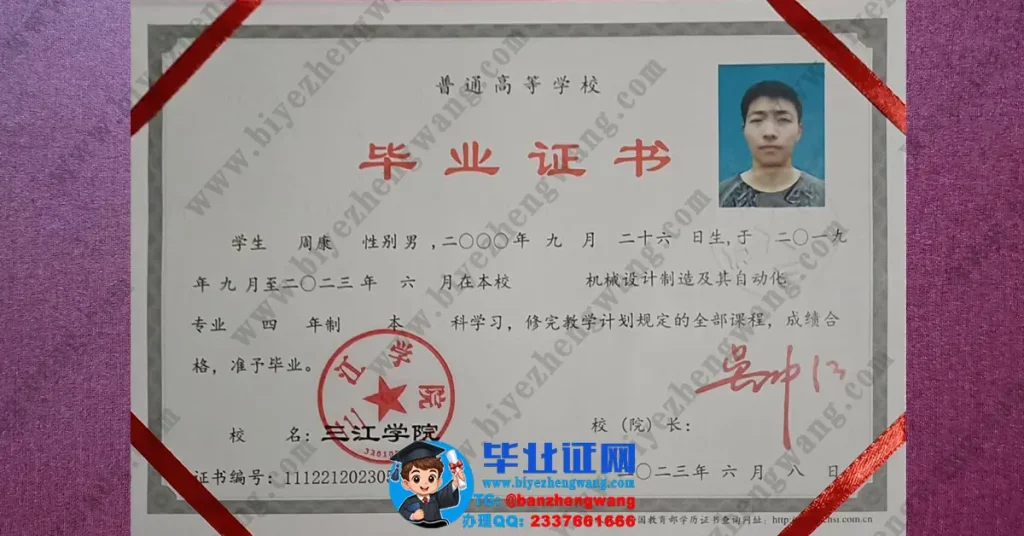 普通高等学校
毕业证书
学生 周康 性别 男,二〇〇〇年 九 月 二十六 日生,于 二〇一九
年 九 月至二〇二三年 六 月在本校 机械设计制造及其自动化
专业 四 年制 本 科学习,修完教学计划规定的全部课程,成绩合
格,准予毕业。
三江学院
校 名:三江学院
校(院)长:
吴中江
证书编号:11122120230
二〇二三年 六 月 八 日
毕业证网
www.biyezhengwang.com
TG: @banzhengwang
办理QQ: 2337661666
国教育部学历证书查询网址:http://
hsi.com.cn
www.biyezhengwang.com